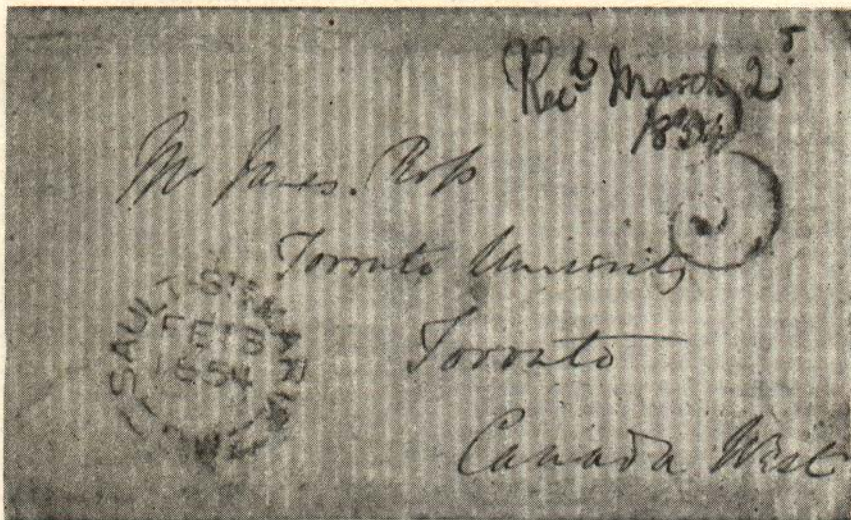 Recd March 2
1854
Mr James. Ross
Toronto University
Toronto
Canada West
SAULT STE. MARIE
FE 13
1854